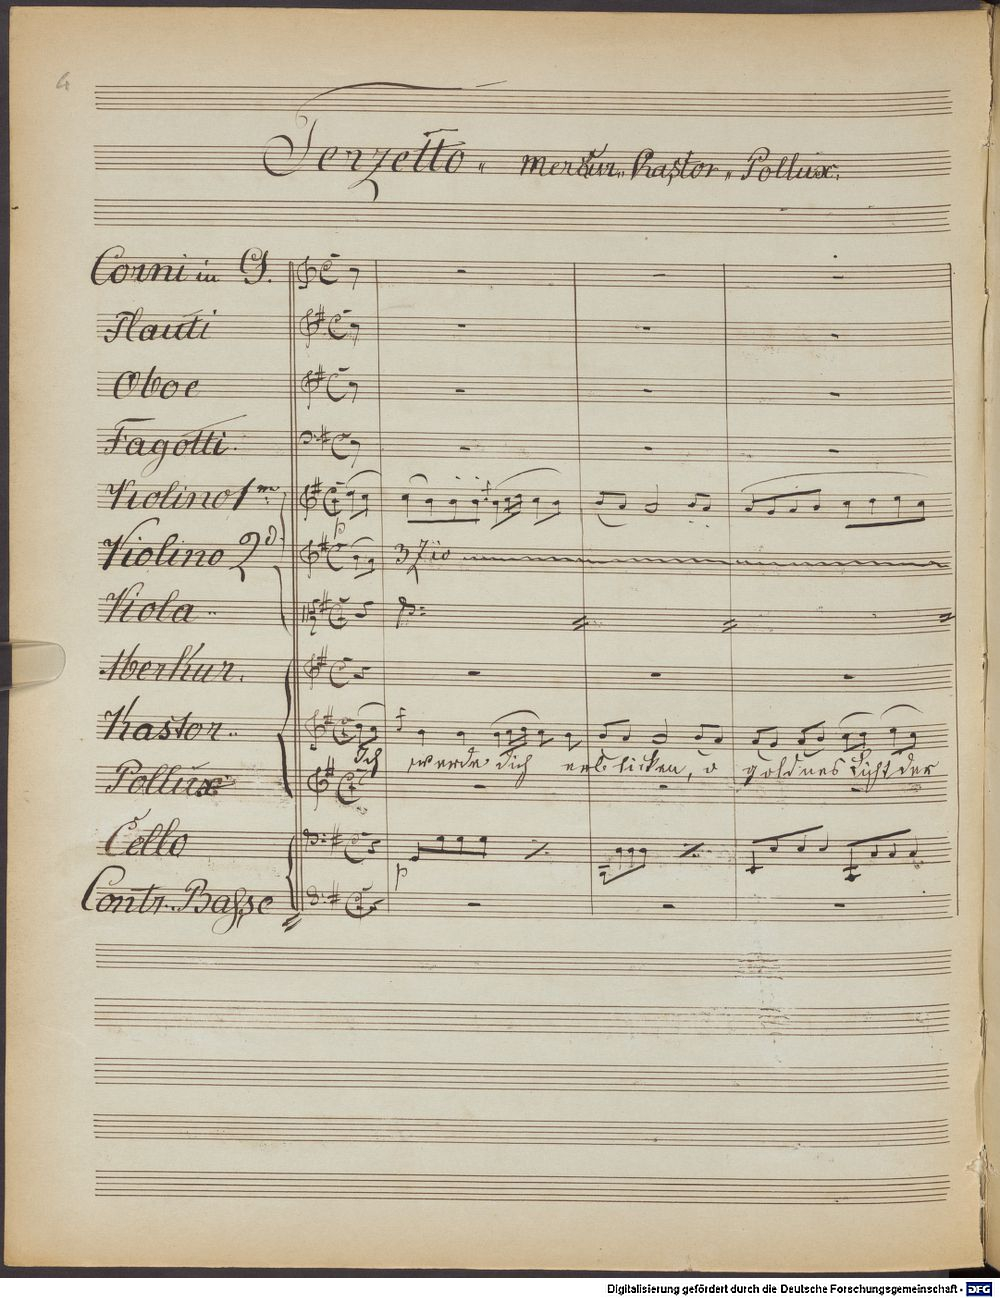 4
Terzetto „ Merkur „ Kastor „ Pollux.
Corni in G.
Flauti
Oboe
Fagotti.
Violino 1mo
Violino 2d.
p
3zio
Viola ..
Merkur.
Kastor ..
Ich werde dich erblicken, o goldnes Licht der
Pollux
Cello
p
Contr. Basse
Digitalisierung gefördert durch die Deutsche Forschungsgemeinschaft - DFG